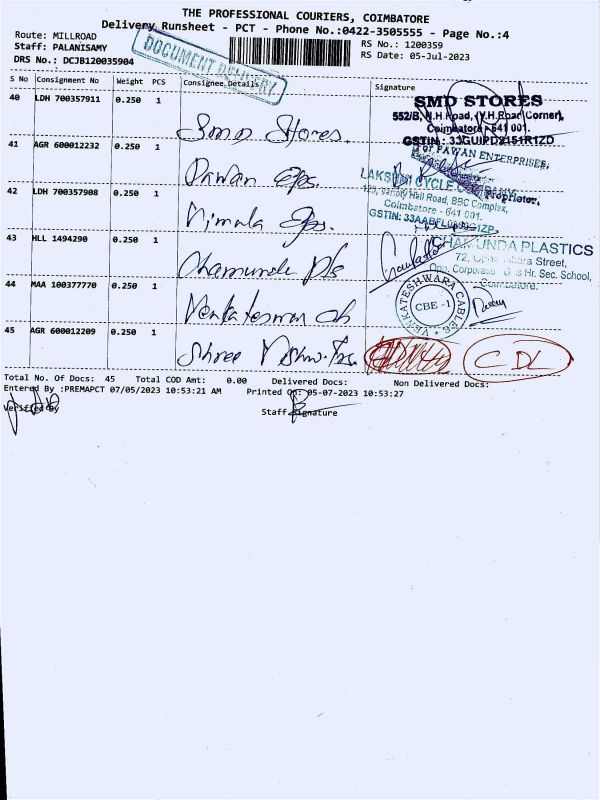 THE PROFESSIONAL COURIERS, COIMBATORE
Delivery Runsheet - PCT - Phone No.:0422-3505555 - Page No.:4
Route: MILLROAD
Staff: PALANISAMY
DRS No.: DCJB120035904
DOCUMENT DELIVERY
RS No.: 1200359
RS Date: 05-Jul-2023
S No Consignment No Weight PCS Consignee Details Signature
40 LDH 700357911 0.250 1 Smd Stores.
SMD STORES
552/B, N.H Road, (V.H.Road Corner),
Coimbatore - 641 001.
GSTIN: 33GUIPD2151R1ZD
41 AGR 600012232 0.250 1 Pawan Eps.
For PAWAN ENTERPRISES,
Proprietor.
42 LDH 700357908 0.250 1 Nimala Eps.
LAKSHMI CYCLE COMPANY
Hall Road, BBC Complex,
Coimbatore - 641 001.
43 HLL 1494290 0.250 1 Chamunde Pls
CHAMUNDA PLASTICS
72, Street,
Opp. Corporation Hr. Sec. School,
Coimbatore.
44 MAA 100377770 0.250 1 Venkateswar ch
VENKATESHWARA CABLES
CBE - 1
45 AGR 600012209 0.250 1 Shree
CDL
Total No. Of Docs: 45 Total COD Amt: 0.00 Delivered Docs: Non Delivered Docs:
Entered By :PREMAPCT 07/05/2023 10:53:21 AM Printed On: 05-07-2023 10:53:27
Verified By Staff Signature